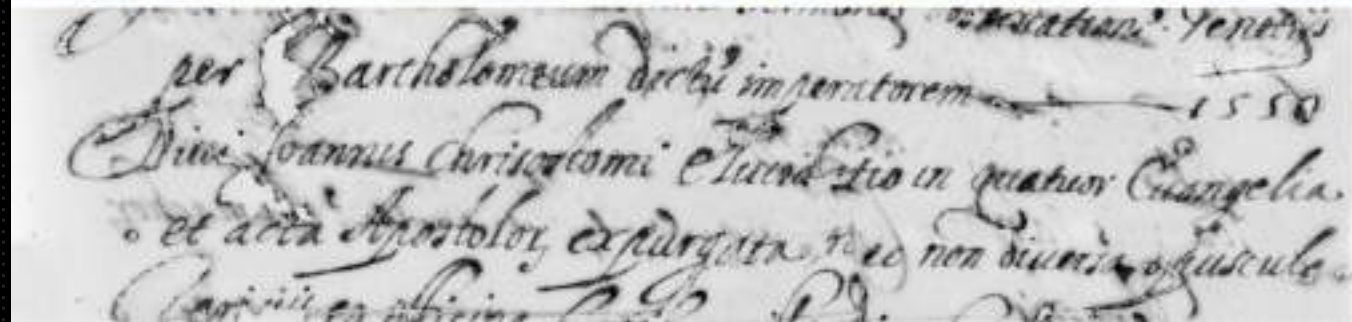 Venetijs
per Bartholomeum dictũ imperatorem 1550
Divi Joannis Chrisostomi Elucidatio in quatuor Euangelia.
et acta Apostolor expurgata nec non diuersa opuscula
Parisiis ex officina